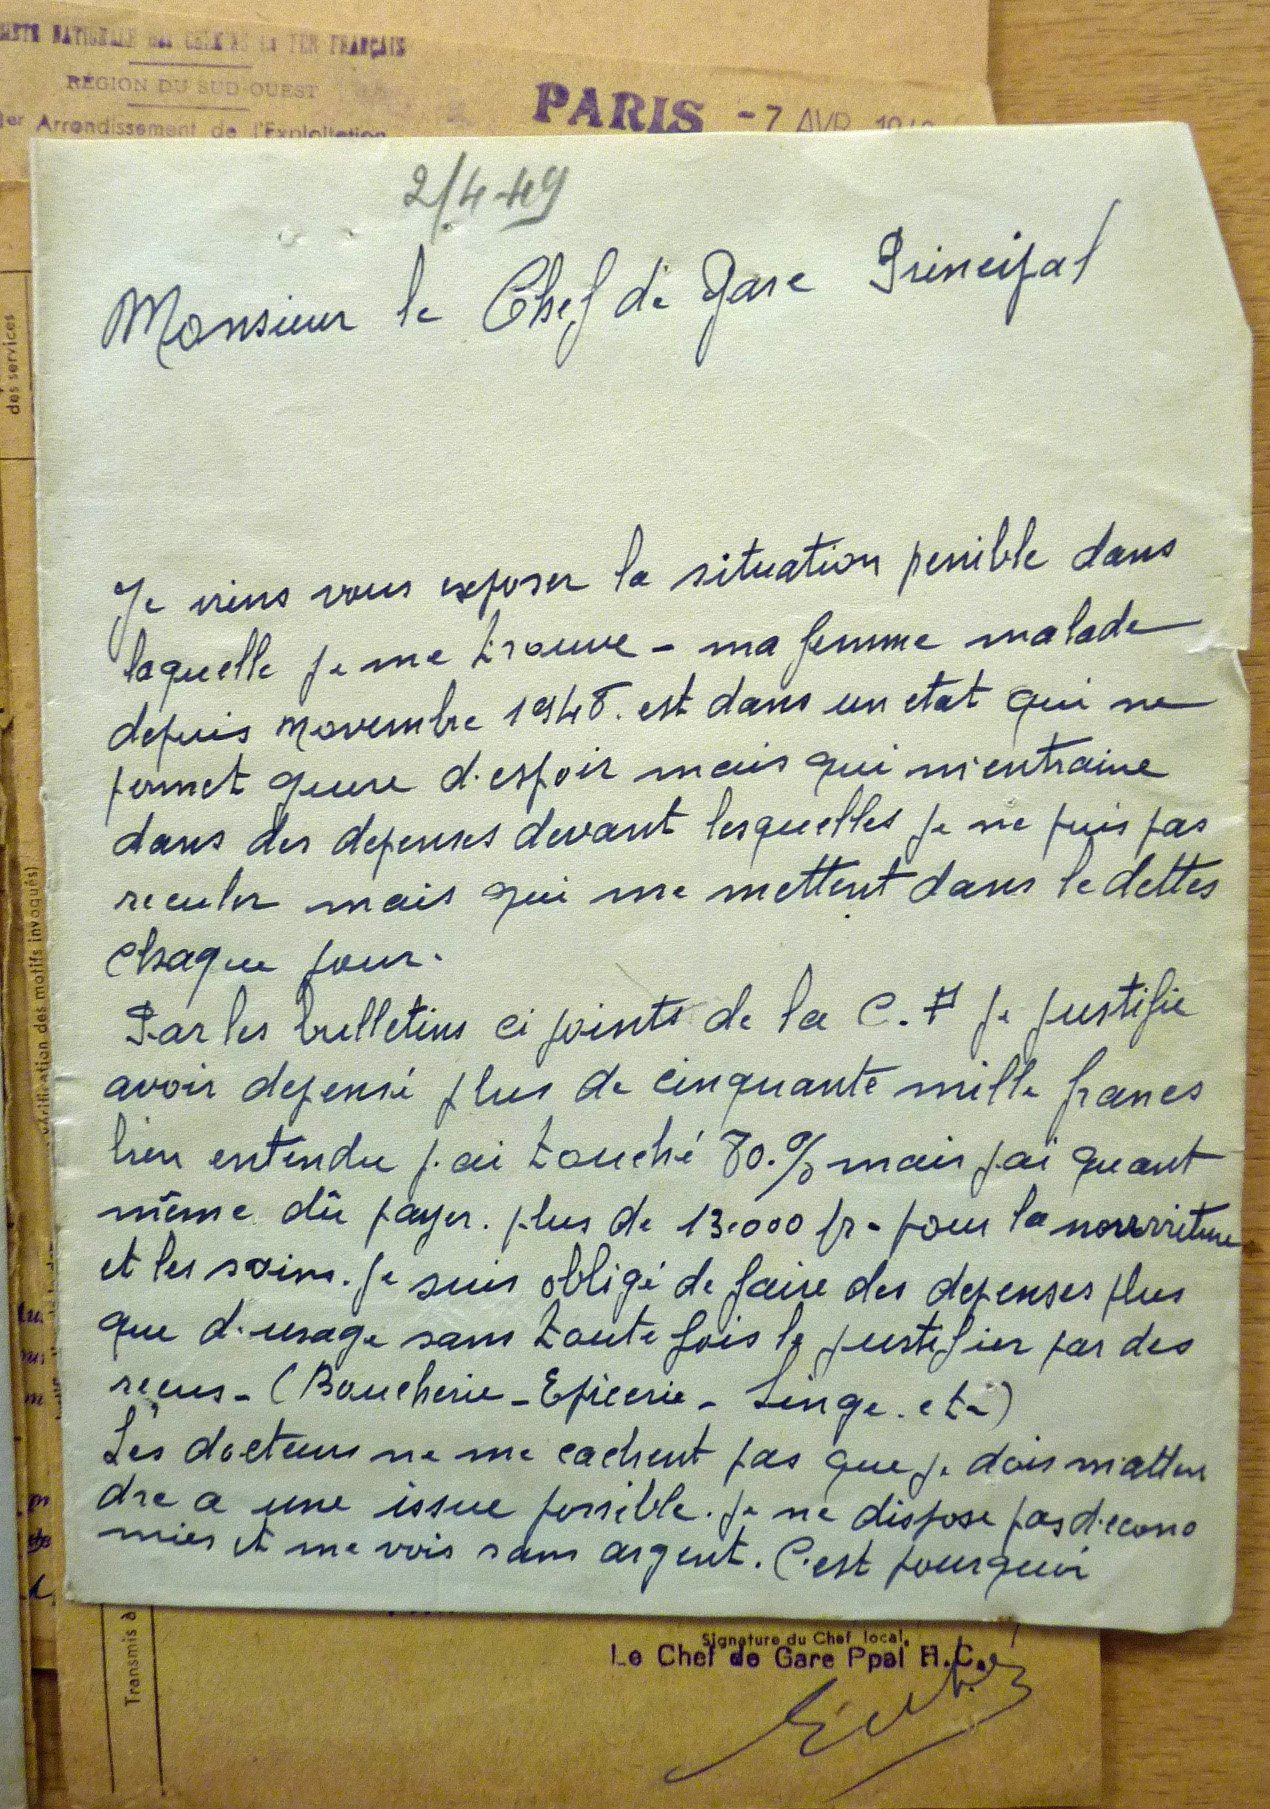 NATIONALE DES CHEMINS DE FER FRANÇAIS
RÉGION DU SUD-OUEST
1er Arrondissement de l'Exploitation
PARIS - 7 AVR
2/4-49
Monsieur le Chef de Gare Principal
Je viens vous exposer la situation penible dans
laquelle je me trouve - ma femme malade
depuis novembre 1948. est dans un etat qui ne
permet guere d'espoir mais qui m'entraine
dans des depenses devant lesquelles je ne puis pas
reculer mais qui me mettent dans le dettes
chaque jour.
Par les bulletins ci joints de la C. P je justifie
avoir depensé plus de cinquante mille francs
bien entendu j'ai touché 80.% mais j'ai quant
même dû payer. plus de 13.000 fr - pour la nourriture
et les soins. Je suis obligé de faire des depenses plus
que d'usage sans toute fois le justifier par des
recus - (Boucherie - Epicerie - Linge. etc)
Les docteurs ne me cachent pas que je dois m'atten
dre a une issue possible. je ne dispose pas d'econo
mies et me vois sans argent. C'est pourquoi
des services
vérification des motifs invoqués)
Transmis à
Signature du Chef local,
Le Chef de Gare Ppal H.C.